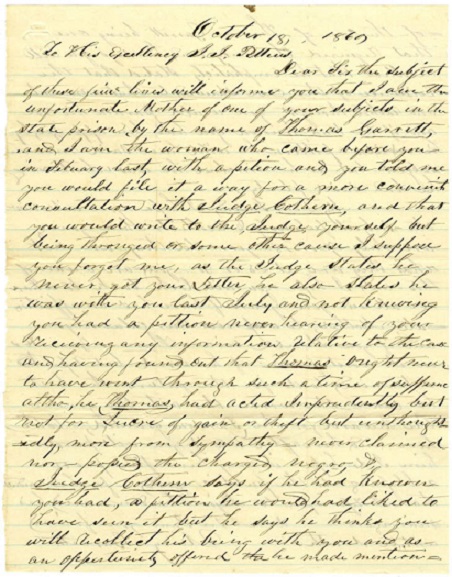 October 18, 1860
To His Excellency J. J. Pettus
Dear Sir the subject
of these few lines will informe you that I am the
unfortunate Mother of one of your subjects in the
state prison by the name of Thomas Garrett,
and I am the woman who came before you
in Februay last, with a petion and you told me
you would file it a way for a more convinint
consultation with Judge Cothern, and that
you would write to the Judge yourself but
being thronged or some other cause I suppose
you forget me, as the Judge States he
never got your Letter, he also states he
was with you last July and not knowing
you had a pittion never hearing of your
receiving any information relative to the case
and having found out that Thomas ought never
to have went through such a time of
altho, he Thomas, had acted Imprudently but
not for Lucre of gain or theft but unthough-
edly, more from sympathy never claimed
nor the charged negro, &
Judge Cothern says if he had known
you had, a pittion he would had liked to
have seen it but he says he thinks you
will recollect his being with you and as
an oppertunity offered he made mention